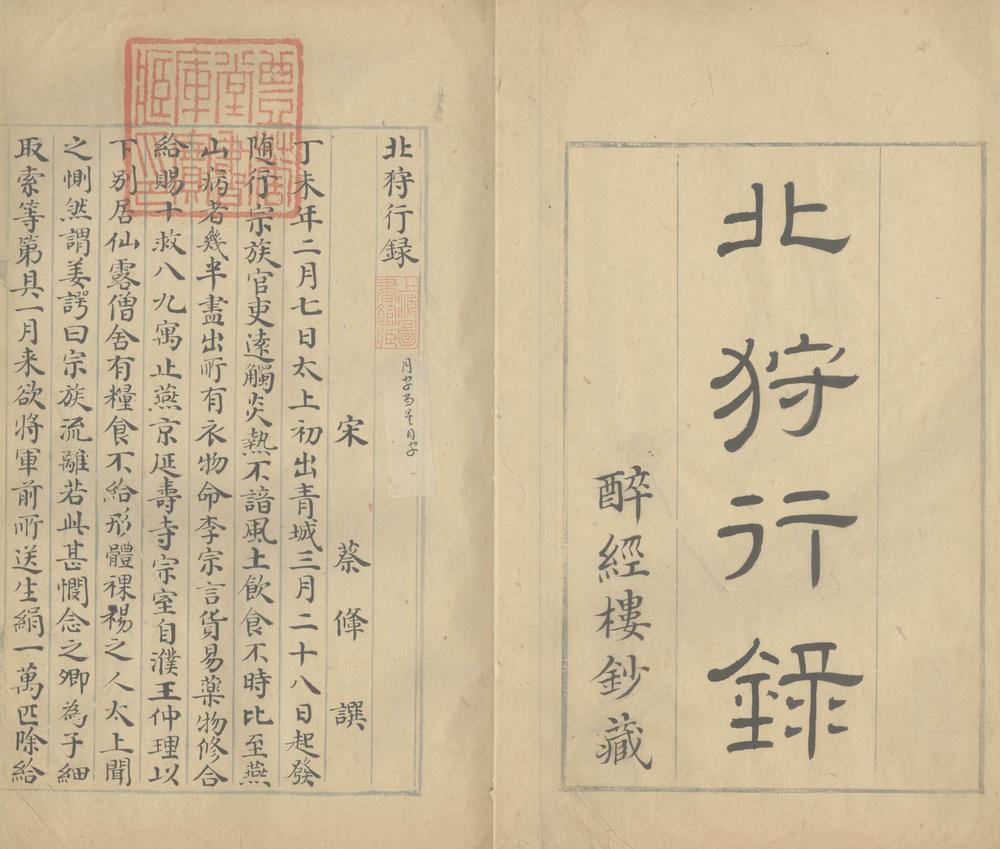 北狩行錄
醉經樓鈔藏
北狩行録
上海圖書館藏
宋 蔡鞗 譔
丁未年二月七日太上初出青城三月二十八日起發
随行宗族官吏遠觸炎熱不諳風土飲食不時比至燕
山病者幾半盡出所有衣物命李宗言貨易藥物修合
給賜十救八九寓止燕京延壽寺宗室自濮王仲理以
下别居仙露僧舍有糧食不給形體裸裼之人太上聞
之惻然謂姜諤曰宗族流離若此甚憫念之卿為子細
取索等第具一月来欲將軍前所送生絹一萬匹除給